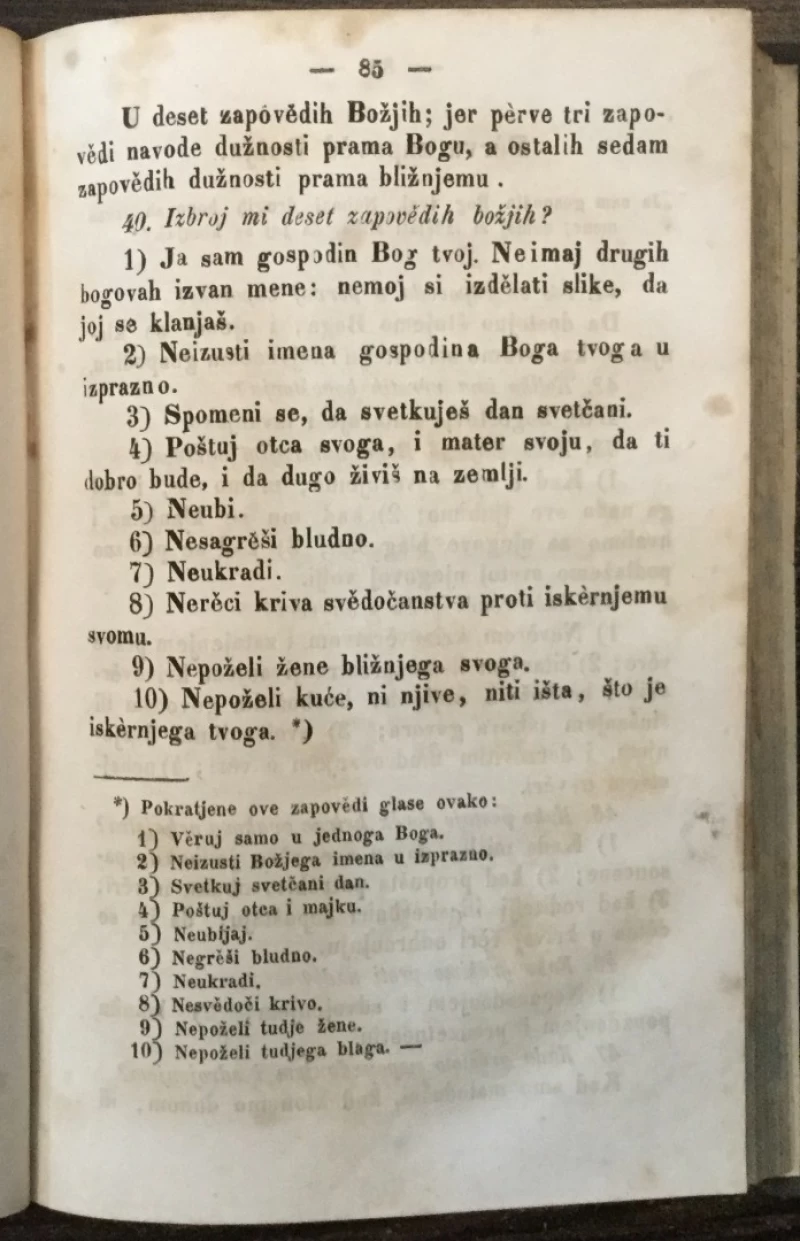 — 85 —
U deset zapóvědih Božjih; jer pèrve tri zapo-
vědi navode dužnosti prama Bogu, a ostalih sedam
zapovědih dužnosti prama bližnjemu .
40. Izbroj mi deset zapovědih božjih?
1) Ja sam gospodin Bog tvoj. Neimaj drugih
bogovah izvan mene: nemoj si izdělati slike, da
joj se klanjaš.
2) Neizusti imena gospodina Boga tvoga u
izprazno.
3) Spomeni se, da svetkuješ dan svetčani.
4) Poštuj otca svoga, i mater svoju, da ti
dobro bude, i da dugo živiš na zemlji.
5) Neubi.
6) Nesagrěši bludno.
7) Neukradi.
8) Nerěci kriva svědočanstva proti iskèrnjemu
svomu.
9) Nepoželi žene bližnjega svoga.
10) Nepoželi kuće, ni njive, niti išta, što je
iskèrnjega tvoga. *)
*) Pokratjene ove zapovědi glase ovako:
1) Věruj samo u jednoga Boga.
2) Neizusti Božjega imena u izprazno.
3) Svetkuj svetčani dan.
4) Poštuj otca i majku.
5) Neubijaj.
6) Negrěši bludno.
7) Neukradi.
8) Nesvědoči krivo.
9) Nepoželi tudje žene.
10) Nepoželi tudjega blaga. —